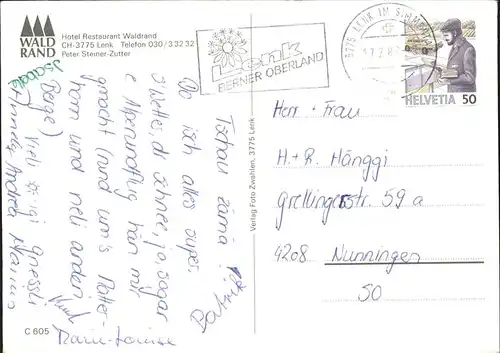 WALD
RAND
Hotel Restaurant Waldrand
CH-3775 Lenk   Telefon 030/3 32 32
Peter Steiner-Zutter
Lenk
BERNER OBERLAND
3775 LENK IM SIMMENTAL
HELVETIA 50
Tschau zämä!
Do isch alles super,
s'Wetter, dr Schnee, jo sogar
e Alpenrundflug hän mir
gmacht (rund um's Matter-
horn und
Berge) Viel
Patrik
Marie-Louise
Isabelle
Andrea
Verlag Foto Zwahlen, 3775 Lenk
C 605
Herr + Frau
H. + R. Hänggi
Grellingerstr. 59 a
4208 Nunningen
SO